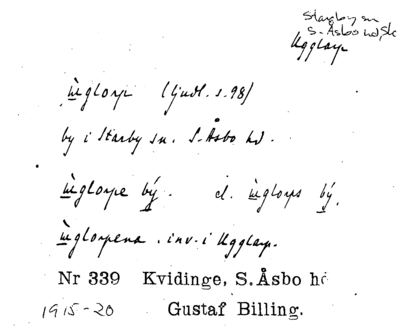 Starby sn
S. Åsbo hd, Sk
Ugglarp
ùglorp (ljudl. s. 98)
by i Starby sn. S. Åsbo hd.
ùglorpe bý. el. ùglorps bý,
ùglorpena. inv. i Ugglarp.
Nr 339 Kvidinge, S. Åsbo hd
1915-20 Gustaf Billing.